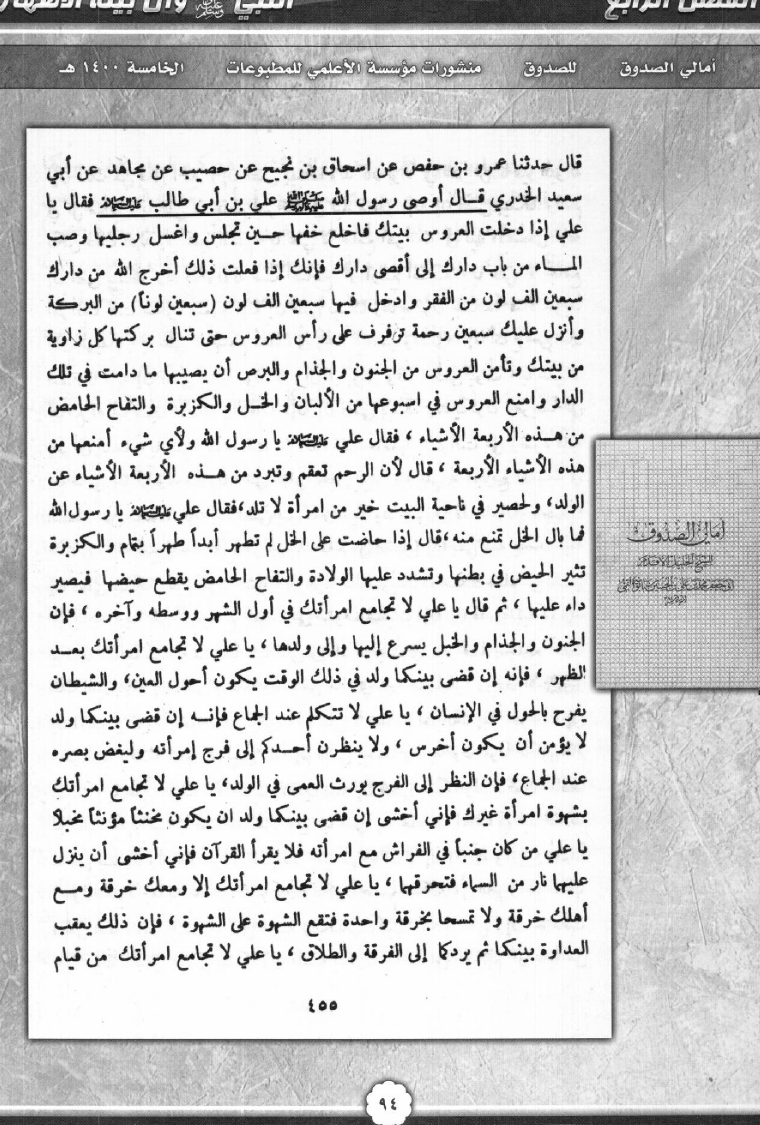 الفصل الرابع
النبي ﷺ وآل بيته الأطهار
أمالي الصدوق للصدوق منشورات مؤسسة الأعلمي للمطبوعات الخامسة ١٤٠٠ هـ
قال حدثنا عمرو بن حفص عن اسحاق بن نجيح عن حصيب عن مجاهد عن أبي
سعيد الخدري قال أوصى رسول الله ﷺ علي بن أبي طالب عليه السلام فقال يا
علي إذا دخلت العروس بيتك فاخلع خفها حين تجلس واغسل رجليها وصب
الماء من باب دارك إلى أقصى دارك فإنك إذا فعلت ذلك أخرج الله من دارك
سبعين الف لون من الفقر وادخل فيها سبعين الف لون (سبعين لوناً) من البركة
وأنزل عليك سبعين رحمة ترفرف على رأس العروس حتى تنال بركتها كل زاوية
من بيتك وتأمن العروس من الجنون والجذام والبرص أن يصيبها ما دامت في تلك
الدار وامنع العروس في اسبوعها من الألبان والخل والكزبرة والتفاح الحامض
من هذه الأربعة الأشياء ، فقال علي عليه السلام يا رسول الله ولأي شيء أمنعها من
هذه الأشياء الأربعة ، قال لأن الرحم تعقم وتبرد من هذه الأربعة الأشياء عن
الولد، ولحصير في ناحية البيت خير من امرأة لا تلد،فقال علي عليه السلام يا رسول الله
فما بال الخل تمنع منه،قال إذا حاضت على الخل لم تطهر أبداً طهراً بتمام والكزبرة
تثير الحيض في بطنها وتشدد عليها الولادة والتفاح الحامض يقطع حيضها فيصير
داء عليها ، ثم قال يا علي لا تجامع امرأتك في أول الشهر ووسطه وآخره ، فإن
الجنون والجذام والخبل يسرع إليها وإلى ولدها ، يا علي لا تجامع امرأتك بعد
الظهر ، فإنه إن قضى بينكما ولد في ذلك الوقت يكون أحول العين، والشيطان
يفرح بالحول في الإنسان ، يا علي لا تتكلم عند الجماع فإنه إن قضى بينكما ولد
لا يؤمن أن يكون أخرس ، ولا ينظرن أحدكم إلى فرج إمرأته وليغض بصره
عند الجماع، فإن النظر إلى الفرج يورث العمى في الولد، يا علي لا تجامع امرأتك
بشهوة امرأة غيرك فإني أخشى إن قضى بينكما ولد ان يكون مخنثاً مؤنثاً مخبلا
يا علي من كان جنباً في الفراش مع امرأته فلا يقرأ القرآن فإني أخشى أن ينزل
عليهما نار من السماء فتحرقهما ، يا علي لا تجامع امرأتك إلا ومعك خرقة ومع
أهلك خرقة ولا تمسحا بخرقة واحدة فتقع الشهوة على الشهوة ، فإن ذلك يعقب
العداوة بينكما ثم يردكما إلى الفرقة والطلاق ، يا علي لا تجامع امرأتك من قيام
٤٥٥
أمالي الصدوق
٩٤